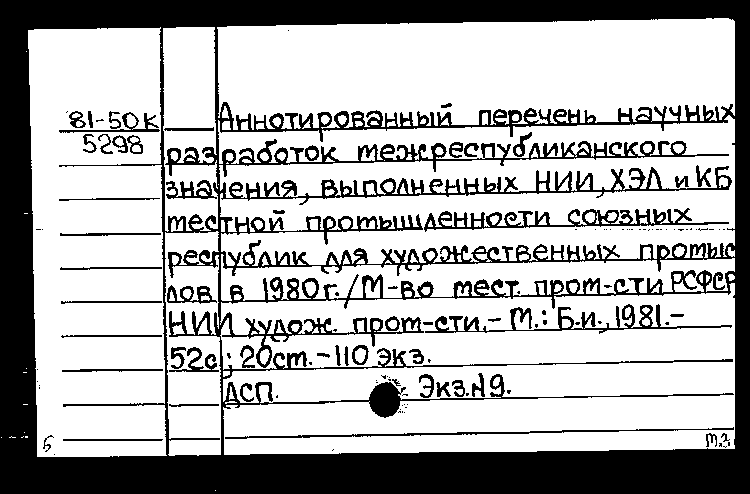 81-50К Аннотированный перечень научных
5298 разработок межреспубликанского
значения, выполненных НИИ, ХЭЛ и КБ
местной промышленности союзных
республик для художественных промыс
лов в 1980г./М-во мест. пром-сти РСФСР
НИИ худож. пром-сти.-М.: Б.и., 1981.-
52с.; 20см.-110 экз.
ДСП. Экз.№9.
Б м.з